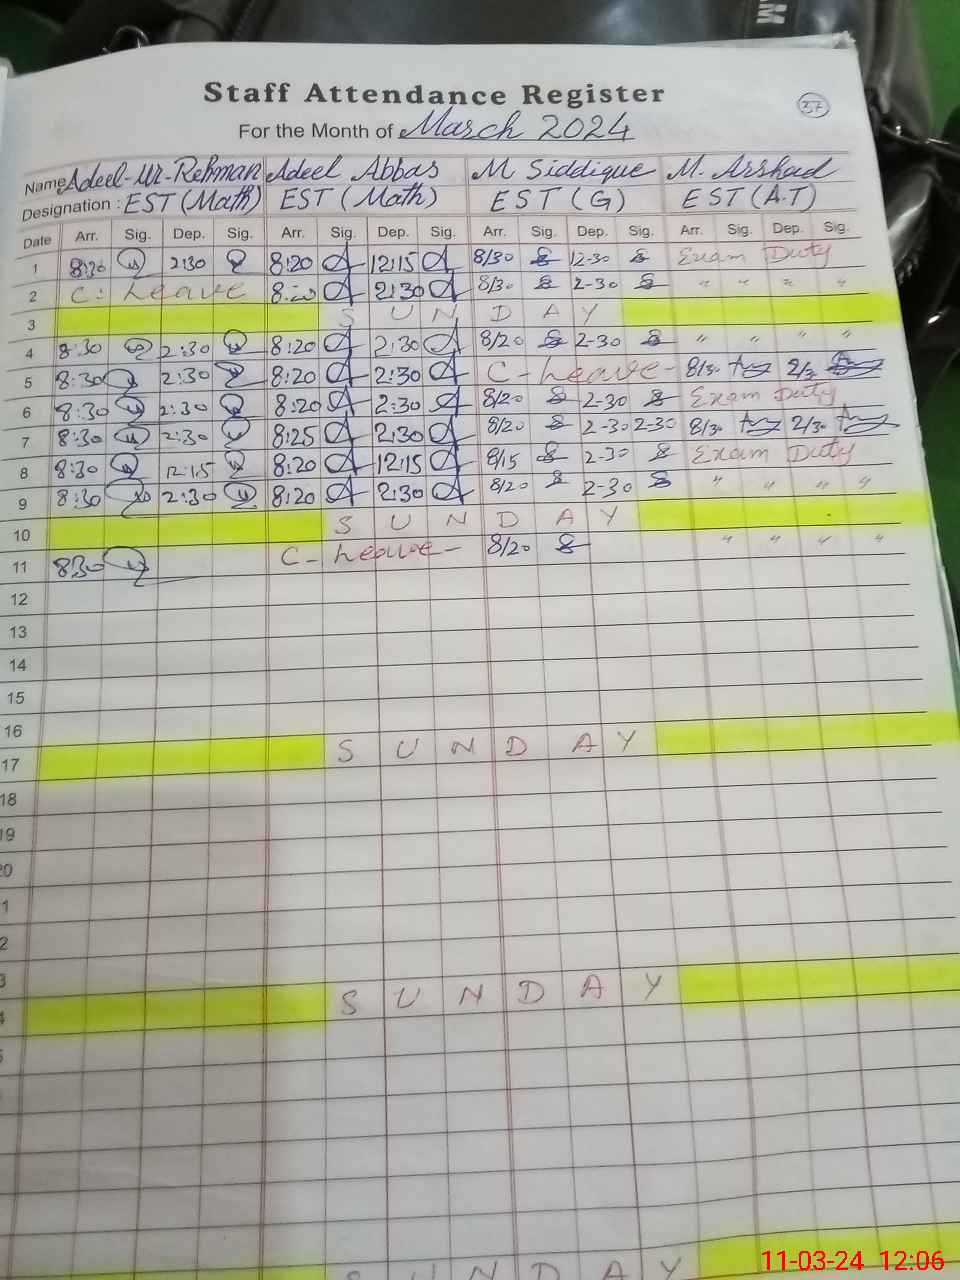 M
Staff Attendance Register
37
For the Month of March 2024
Name Adeel-Ur-Rehman Adeel Abbas M Siddique M. Arshad
Designation : EST (Math) EST (Math) EST (G) EST (A.T)
Date Arr. Sig. Dep. Sig. Arr. Sig. Dep. Sig. Arr. Sig. Dep. Sig. Arr. Sig. Dep. Sig.
1 8:30 2:30 8:20 12:15 8/30 12-30 Exam Duty
2 C. Leave 8:20 2:30 8/30 2-30 " " " "
3 S U N D A Y
4 8:30 2:30 8:20 2:30 8/20 2-30 " " "
5 8:30 2:30 8:20 2:30 C- Leave- 8/30 2/30
6 8:30 2:30 8:20 2:30 8/20 2-30 Exam Duty
7 8:30 2:30 8:25 2:30 8/20 2-30 2-30 8/30 2/30
8 8:30 12:15 8:20 12:15 8/15 2-30 Exam Duty
9 8:30 2:30 8:20 2:30 8/20 2-30 " " " "
10 S U N D A Y
11 8:30 C- Leave- 8/20 " " " "
12
13
14
15
16
17 S U N D A Y
18
19
20
1
2
3
4 S U N D A Y
5
S U N D A Y
11-03-24 12:06